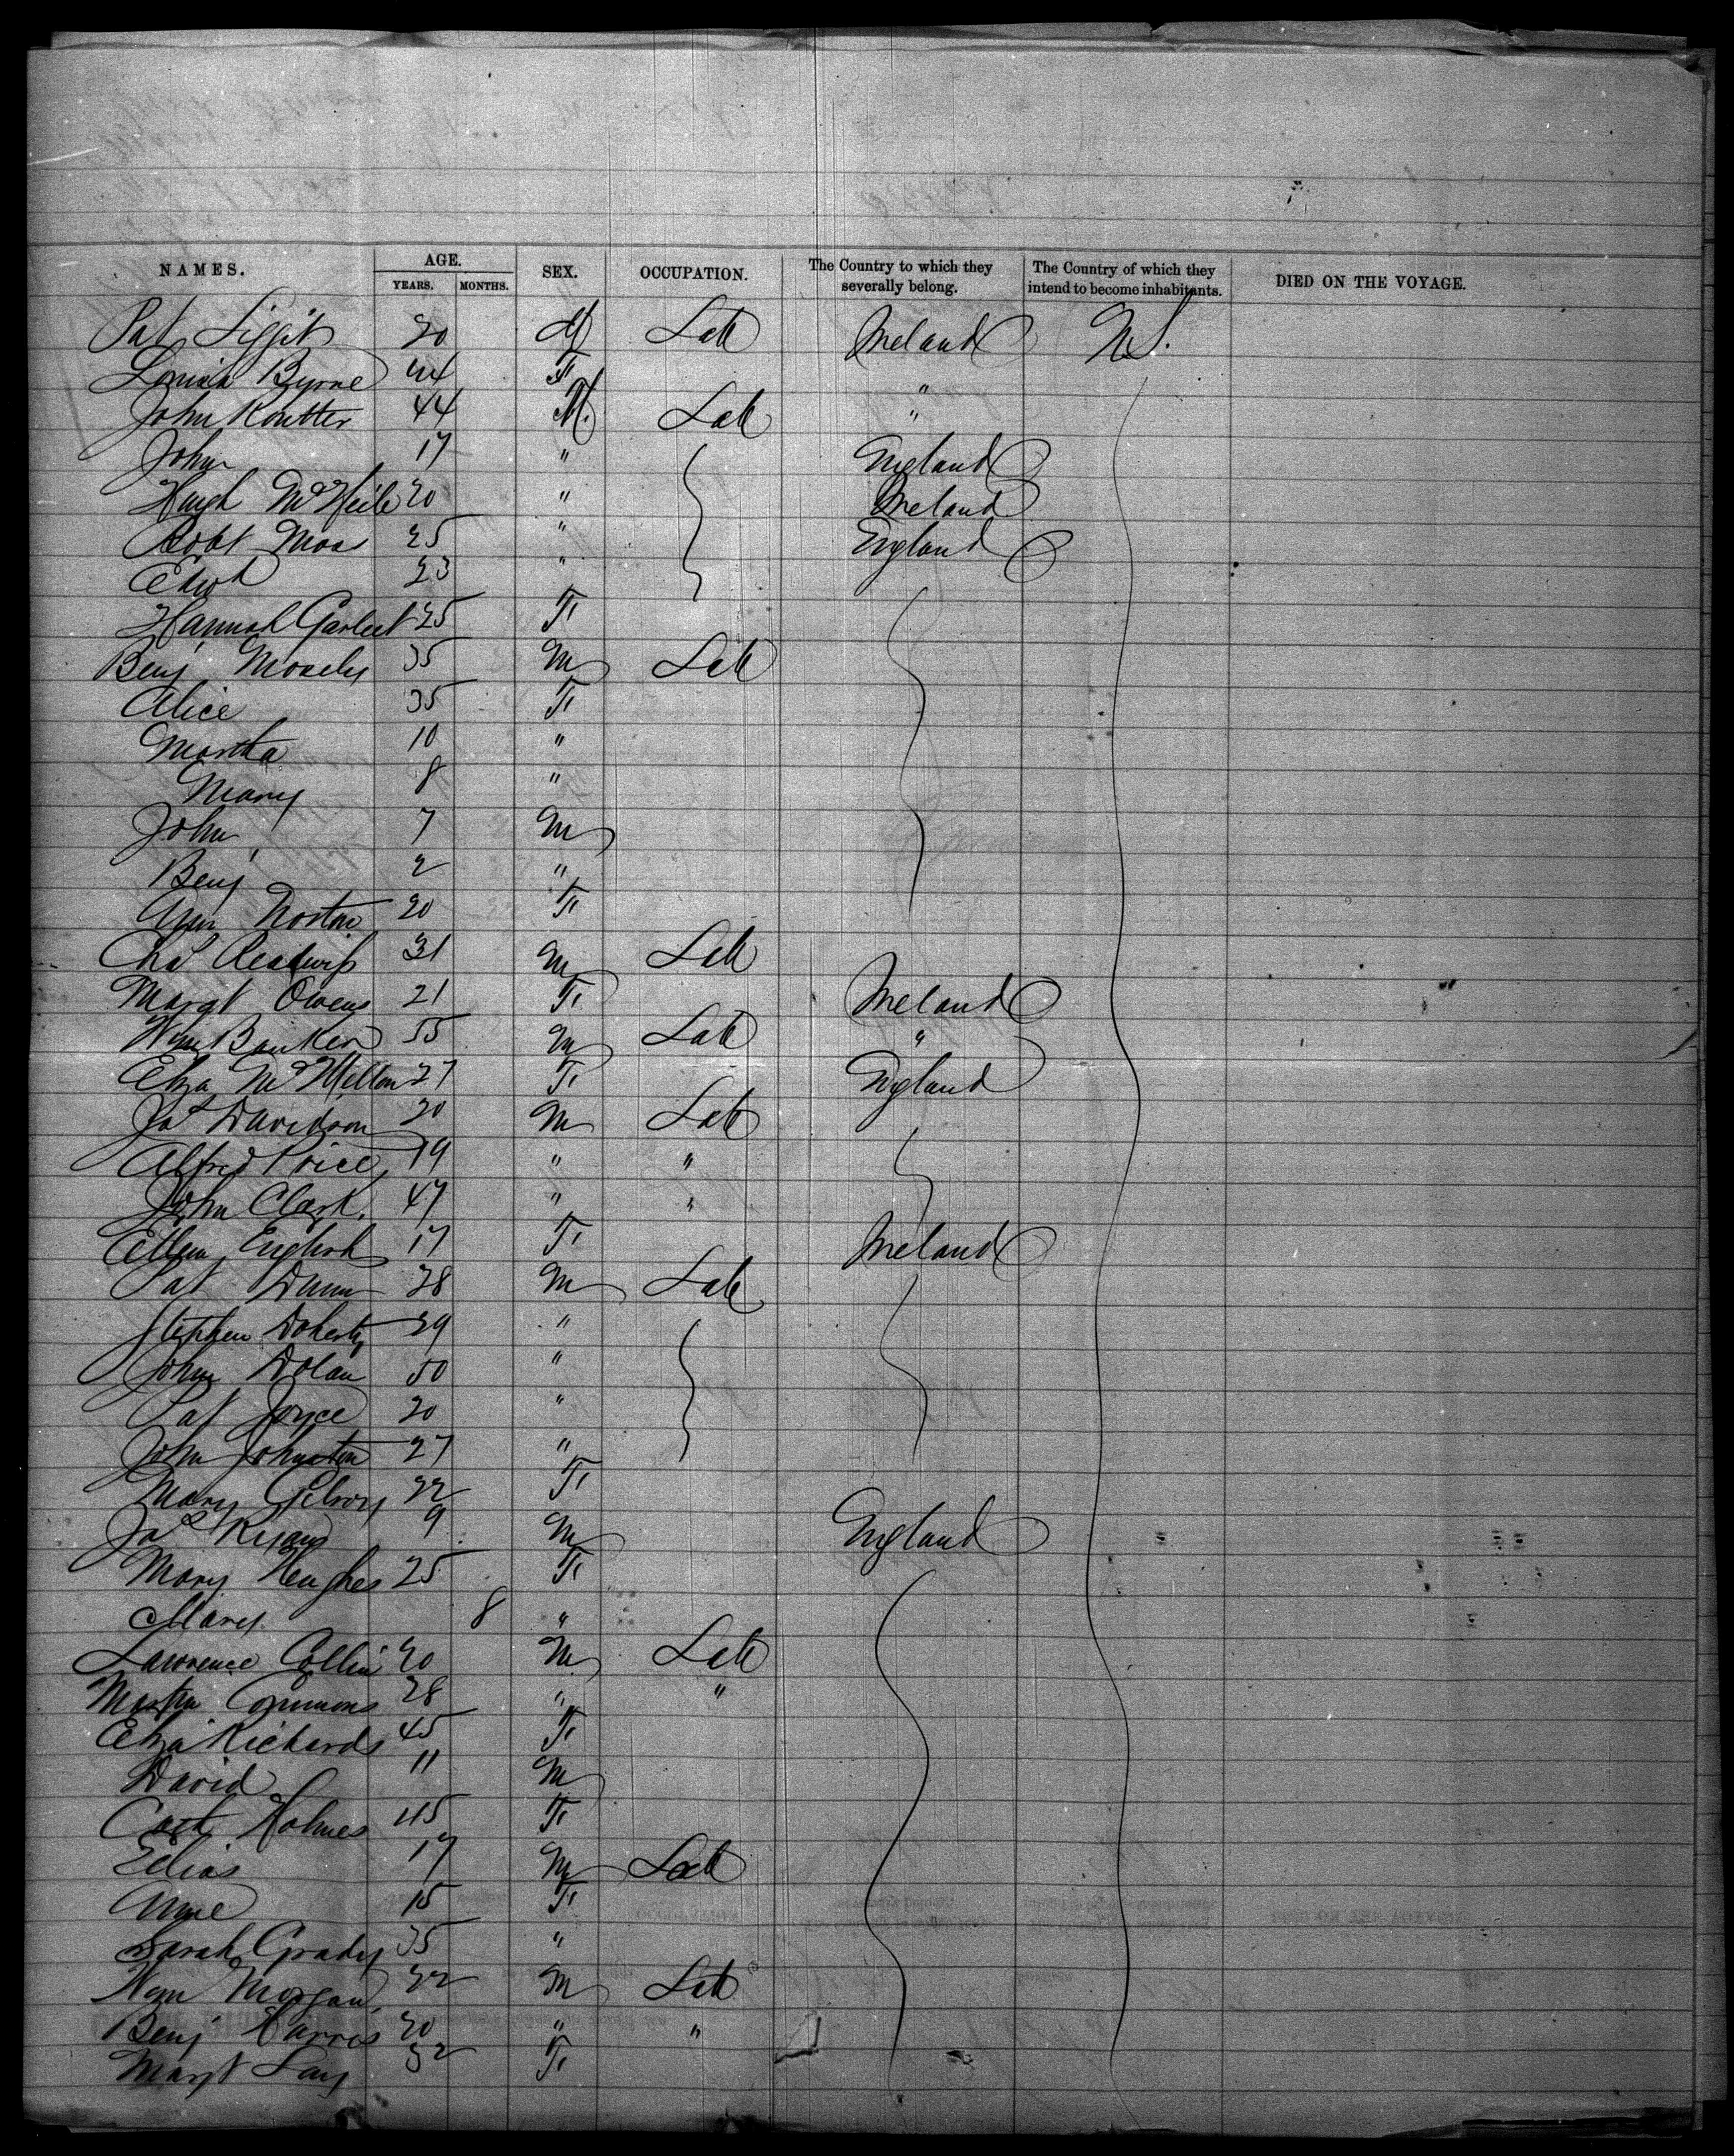 NAMES. AGE. YEARS. MONTHS. SEX. OCCUPATION. The Country to which they severally belong. The Country of which they intend to become inhabitants. DIED ON THE VOYAGE.
Pat 20 M Lab Ireland U.S.
Louisa Byrne 44 F "
John 44 M. Lab "
John 17 " England
Hugh McNeile 20 " Ireland
Robt Moss 25 " England
Edwd 23 "
Hannah 25 F
Benj Mosely 35 M Lab
Alice 35 F
Martha 10 "
Mary 8 "
John 7 M
Benj 2 "
Ann Norton 20 F
Chas 31 M Lab
Margt Owens 21 F Ireland
Wm 55 M Lab "
Eliza 27 F England
Jas Davidson 20 M Lab
Alfred Price 19 " "
John Clark. 47 " "
Ellen English 17 F Ireland
Pat Dunn 28 M Lab
Stephen Doherty 29 "
John Dolan 50 "
Pat Joyce 20 "
John Johnston 27 "
Mary Gilroy 22 F
Jas 9 M England
Mary Hughes 25 F
Mary 8 "
Lawrence 20 M Lab
Martin Commons 28 " "
Eliza Richards 45 F
David 11 M
Cath Holmes 45 F
Elias 17 M Lab
Anne 15 F
Sarah Grady 35 "
Wm Morgan. 22 M Lab
Benj Harris 20 " "
Margt 32 F